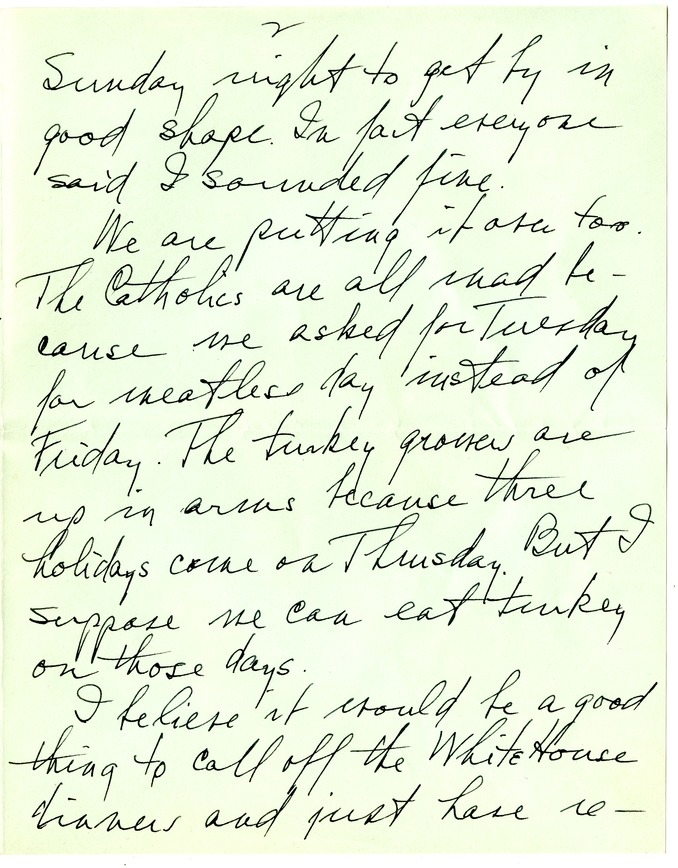 2
Sunday night to get by in
good shape. In fact everyone
said I sounded fine.
We are putting it over too.
The Catholics are all mad be-
cause we asked for Tuesday
for meatless day instead of
Friday. The turkey growers are
up in arms because three
holidays come on Thursday. But I
suppose we can eat turkey
on those days.
I believe it would be a good
thing to call off the White House
dinners and just have re-